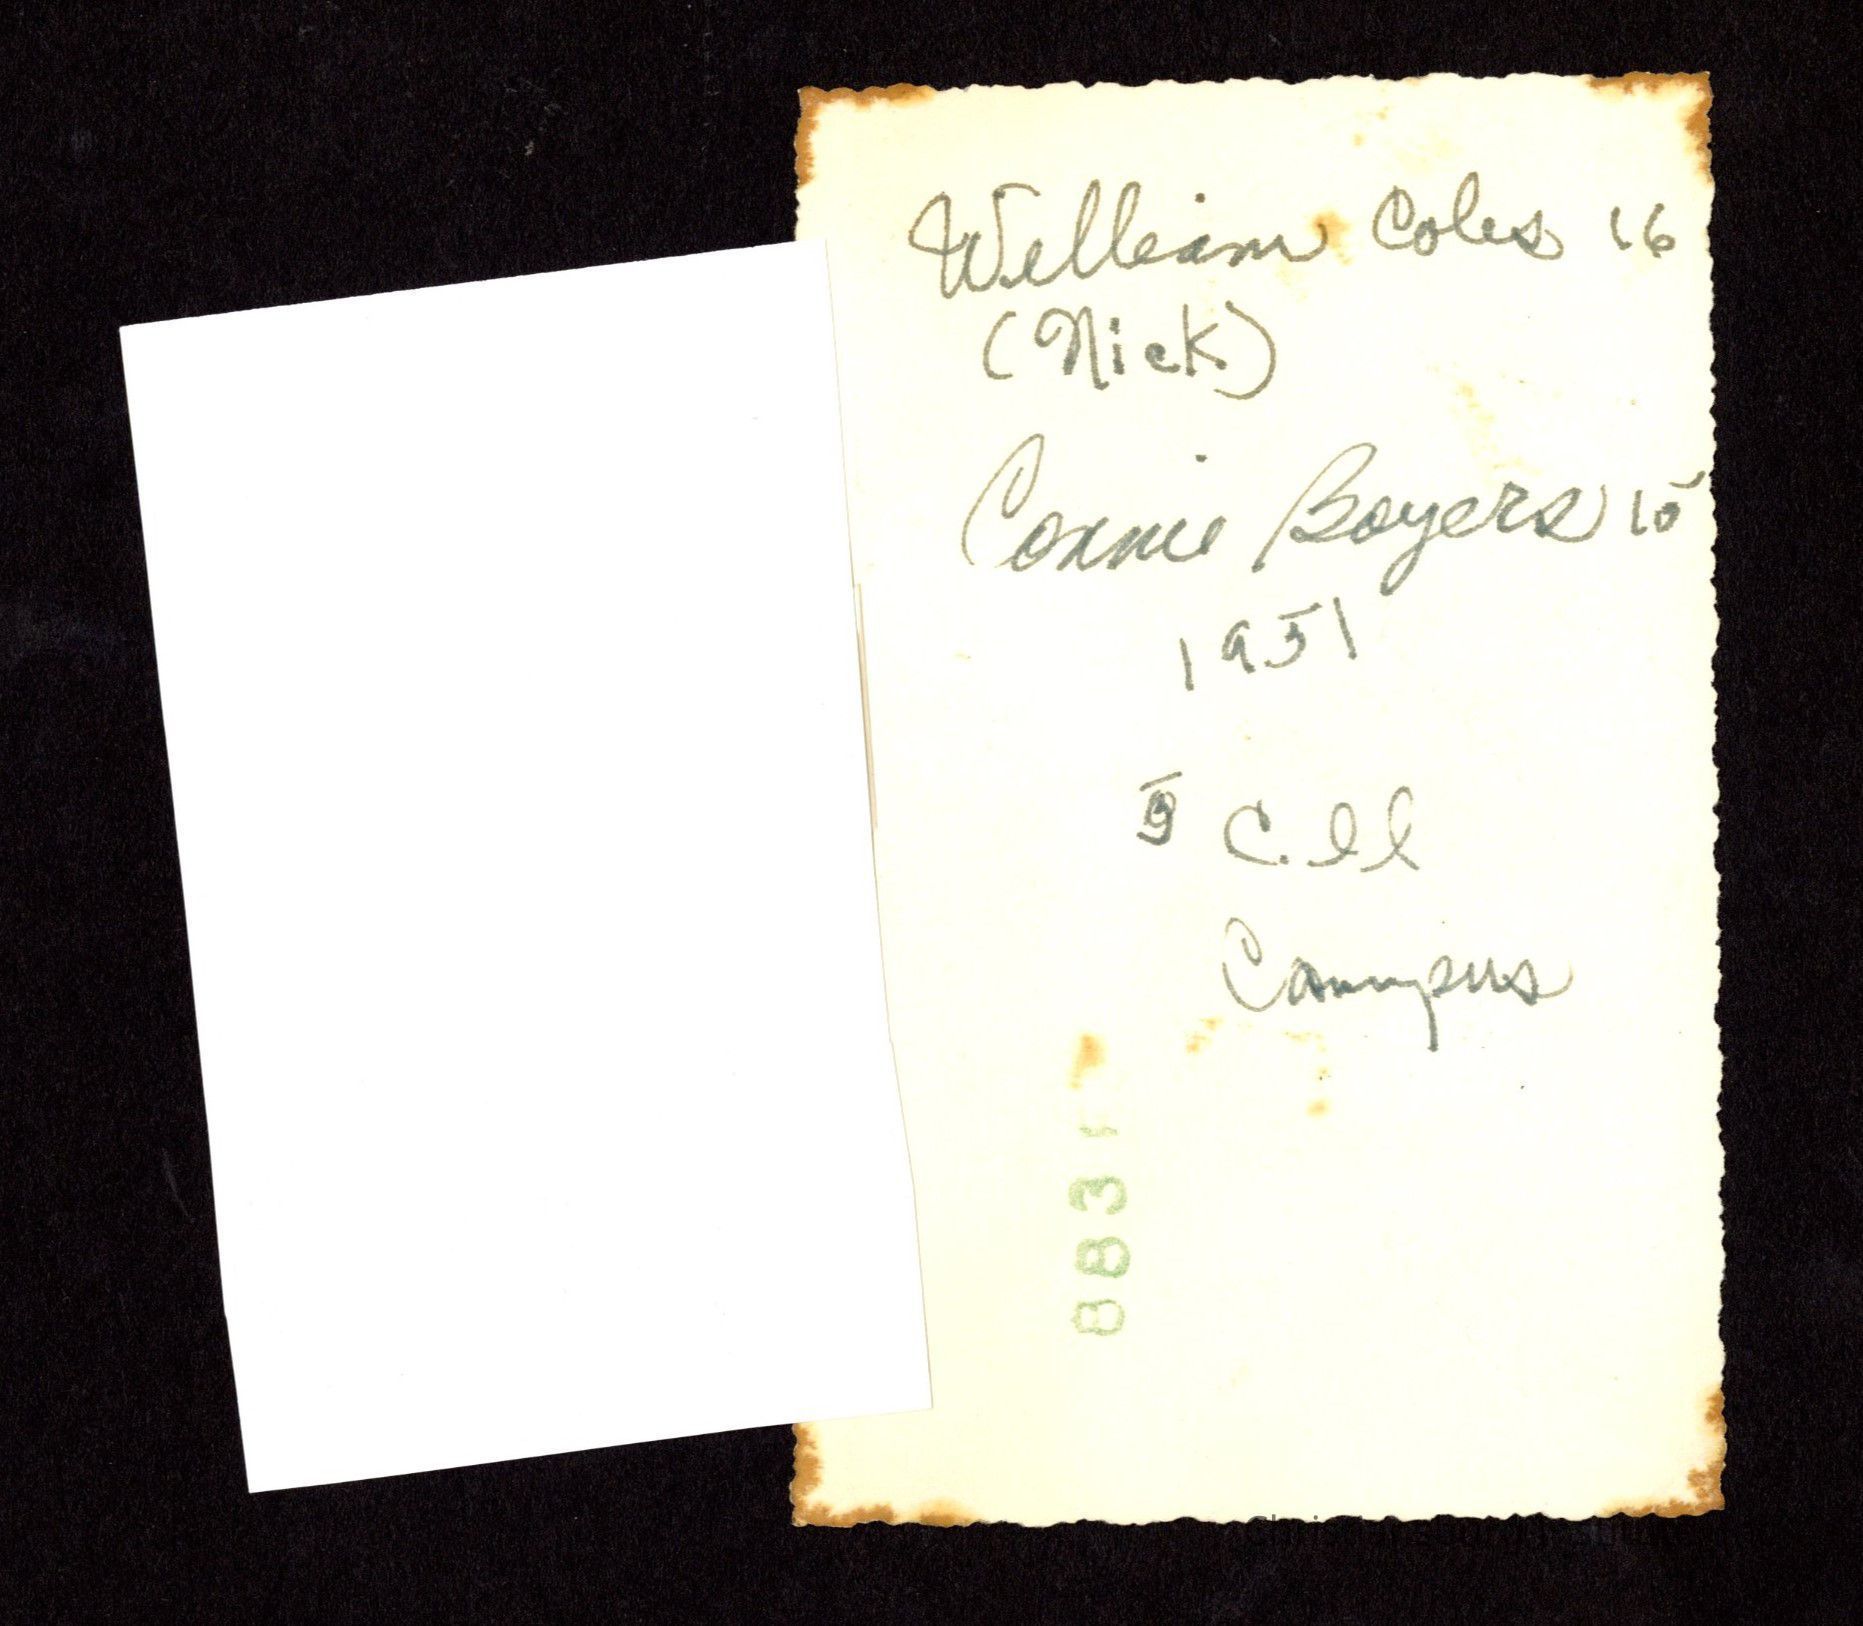 William Coles 16
(Nick)
Connie Boyers 15
1951
C.II
Campus
883